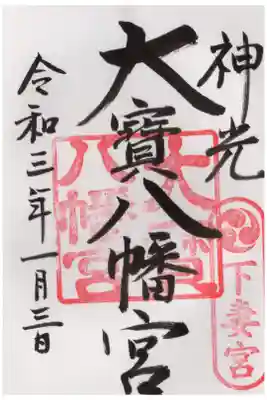 神光
大寶八幡宮
令和三年一月三日
大寶
八幡宮
下妻宮